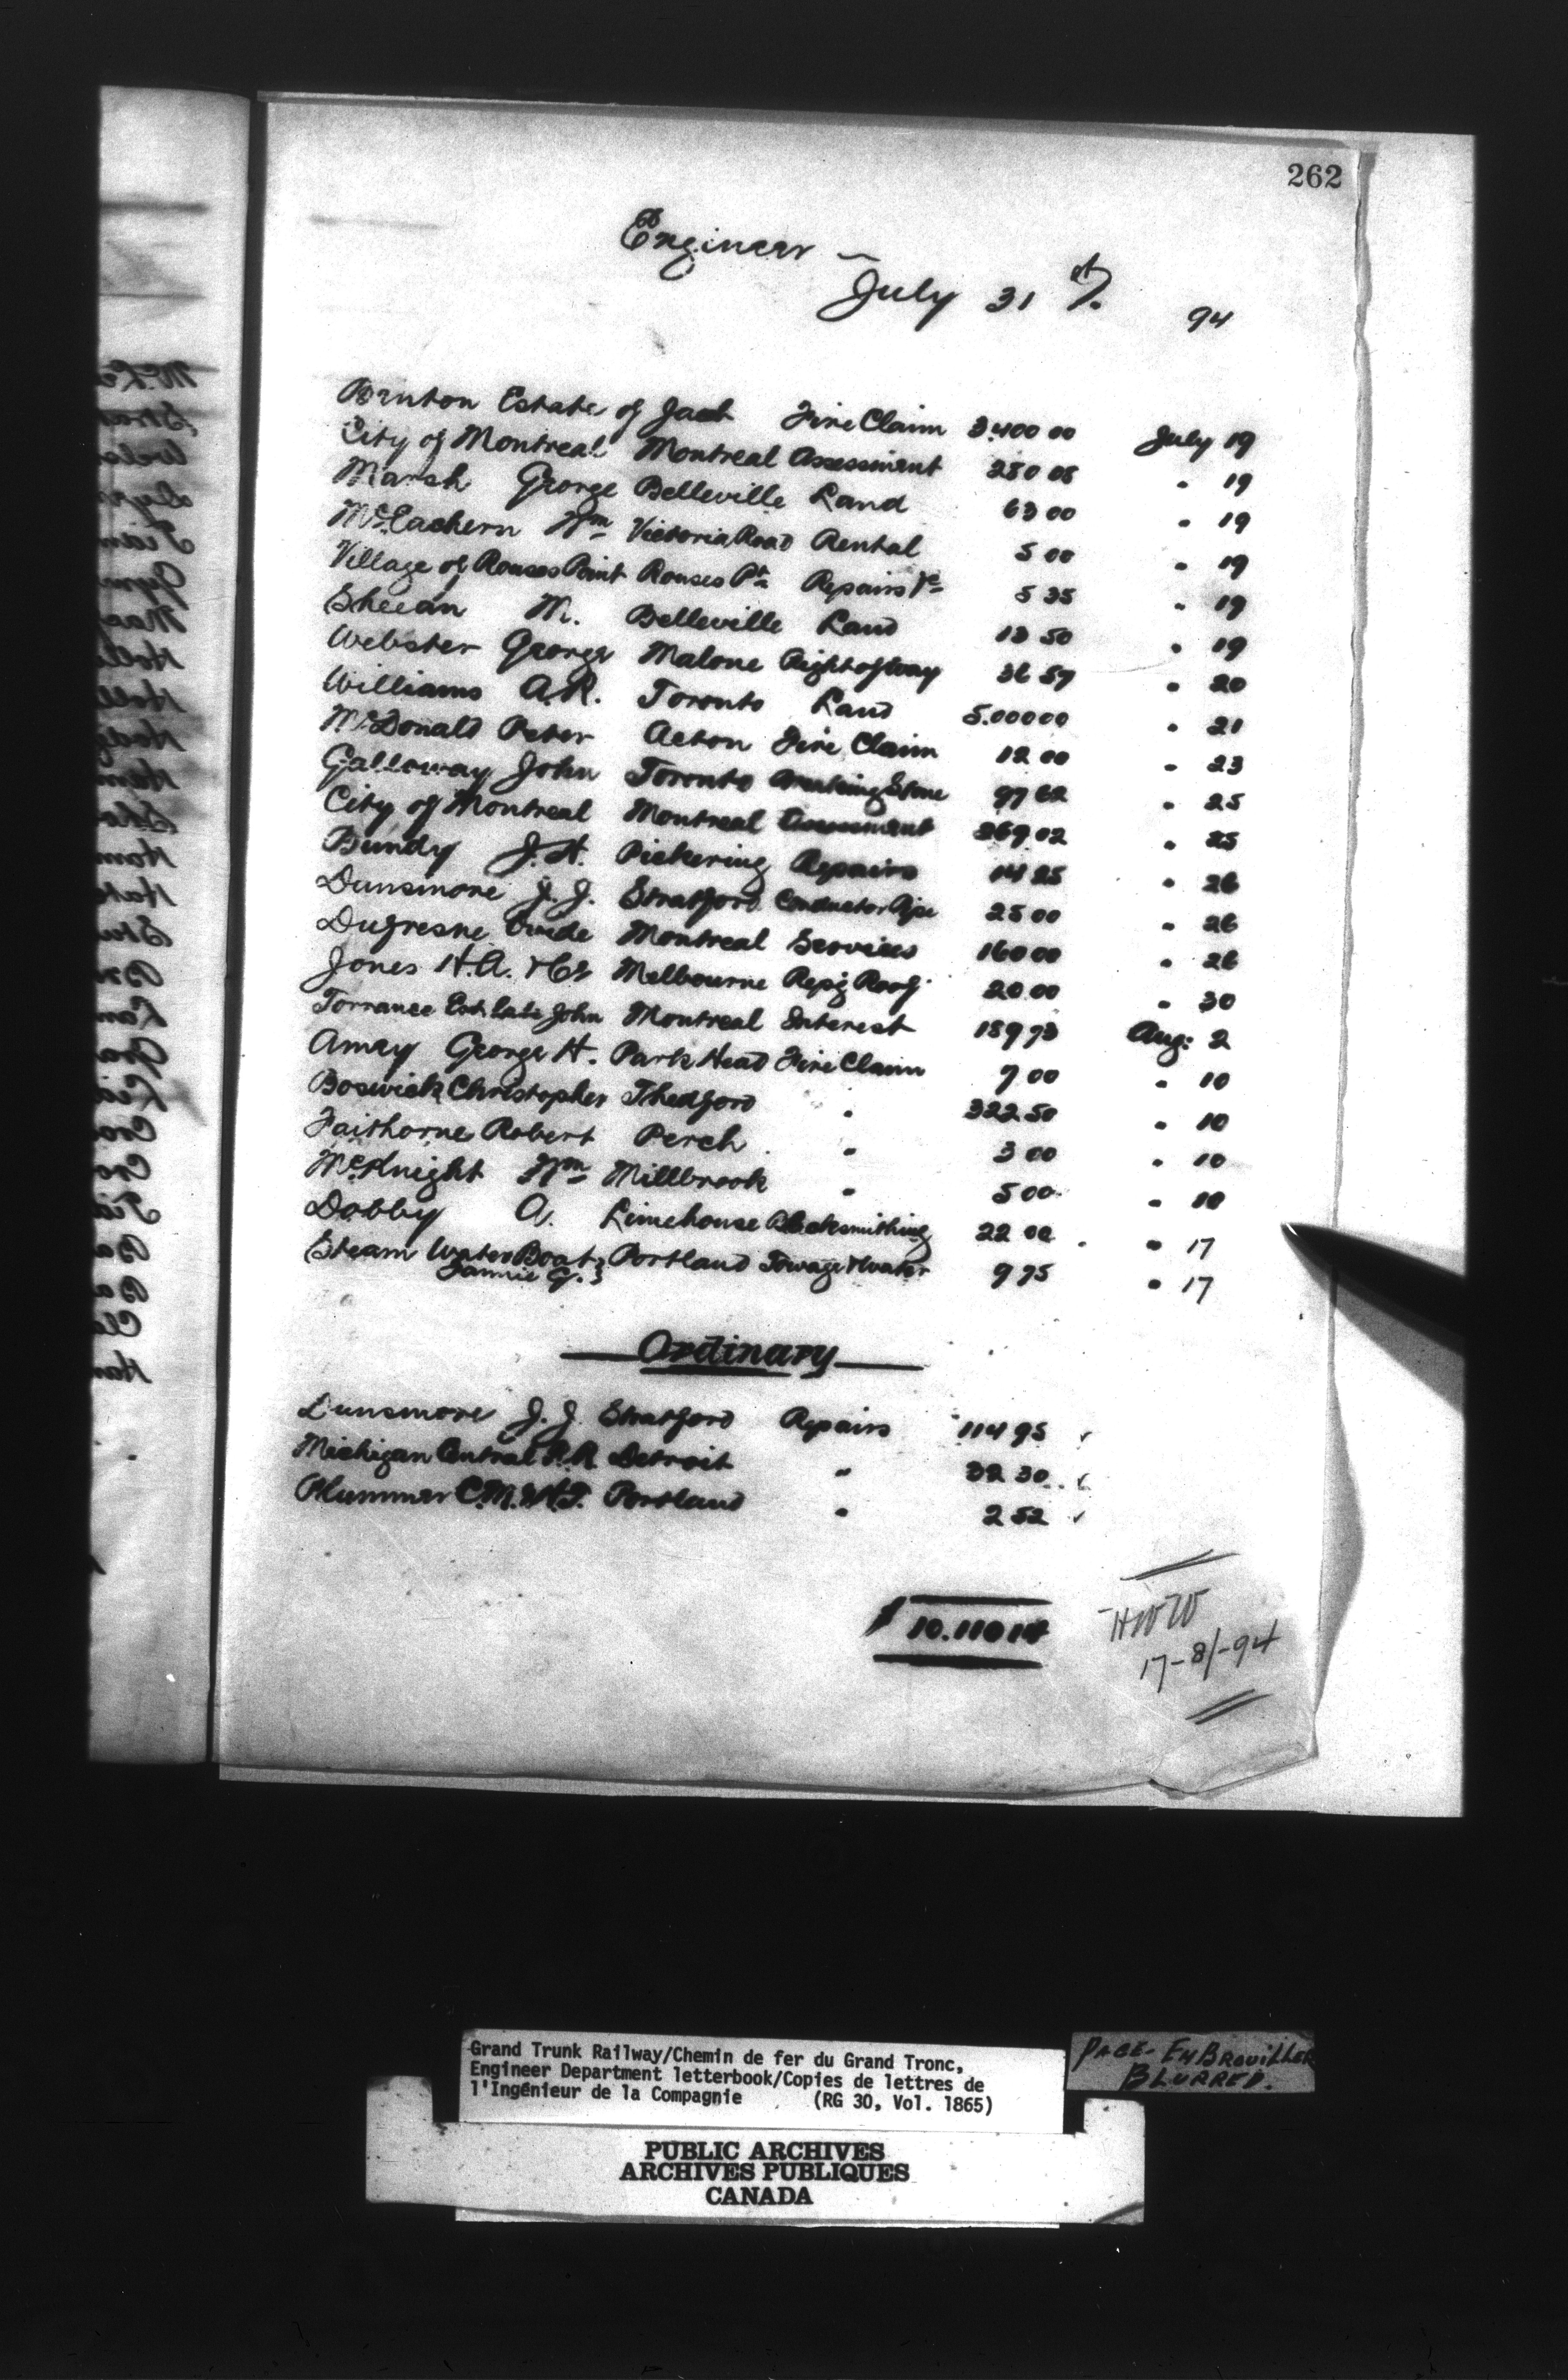 262
Engineer —
July 31st/. 94
Brnton Estate of Jact Fire Claim 3.400 00 July 19
City of Montreal Montreal Assessment 280 08 " 19
Marsh George Belleville Land 63 00 " 19
McEachern Wm Victoria Road Rental 5 00 " 19
Village of Rouses Point Rouses Pt Repairs &c 5 35 " 19
Sheean M. Belleville Land 13 50 " 19
Webster George Malone Right of Way 36 57 " 20
Williams A.R. Toronto Land 5.000 00 " 21
McDonald Peter Acton Fire Claim 12 00 " 23
Galloway John Toronto Breaking Stone 97 62 " 25
City of Montreal Montreal Assessment 369.02 " 25
Bundy J.H. Pickering Repairs 14 25 " 26
Dunsmore J.J. Stratford Conductor Pipe 25 00 " 26
Dufresne Ovide Montreal Services 160 00 " 26
Jones H.A. & Co Melbourne Repg Roof 20.00 " 30
Torrance Est. late John Montreal Interest 189 73 Aug: 2
Amey George H. Park Head Fire Claim 7 00 " 10
Boswick Christopher Thedford " 322.50 " 10
Faithorne Robert Perch " 3 00 " 10
McKnight Wm Millbrook " 5 00 " 10
Dobby A. Limehouse Blacksmithing 22 00 " 17
Steam Water Boat } Portland Towage & water 9 75 " 17
Fannie G. }
Ordinary
Dunsmore J.J. Stratford Repairs 114 95 ✓
Michigan Central R.R. Detroit " 32 30 ✓
Plummer Portland " 2 52 ✓
$ 10.110 14
HWW
17-8/-94
Grand Trunk Railway/Chemin de fer du Grand Tronc,
Engineer Department letterbook/Copies de lettres de
l'Ingénieur de la Compagnie (RG 30, Vol. 1865)
PAGE- EMBROUILLER
BLURRED.
PUBLIC ARCHIVES
ARCHIVES PUBLIQUES
CANADA